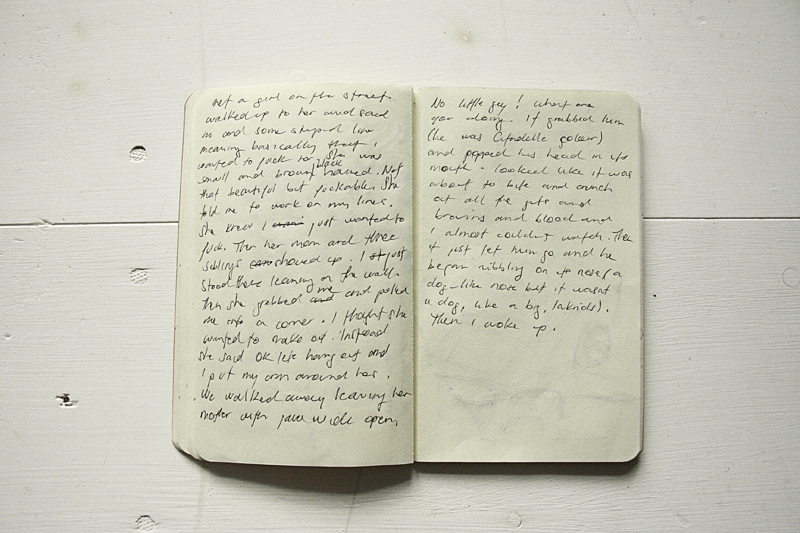 met a girl on the street.
walked up to her and said
m and some stupid line
meaning basically that I
wanted to fuck her she was
small and brown black haired. Not
that beautiful but fuckable. She
told me to work on my lines.
She knew I just wanted to
fuck. Then her mom and three
siblings showed up. I just
stood there leaning on the wall.
Then she grabbed me and pulled
me into a corner. I thought she
wanted to make out. Instead
she said OK lets hang out and
I put my arm around her.
We walked away leaving her
mother with jaw wide open,
No little guy! what are
you doing. It grabbed him
(he was colour)
and popped his head in its
mouth - looked like it was
about to bite and crunch
out all the guts and
brains and blood and
I almost couldn't watch. Then
it just let him go and he
began nibbling on its nose (a
dog-like nose but it wasnt
a dog, like a big,
Then I woke up.